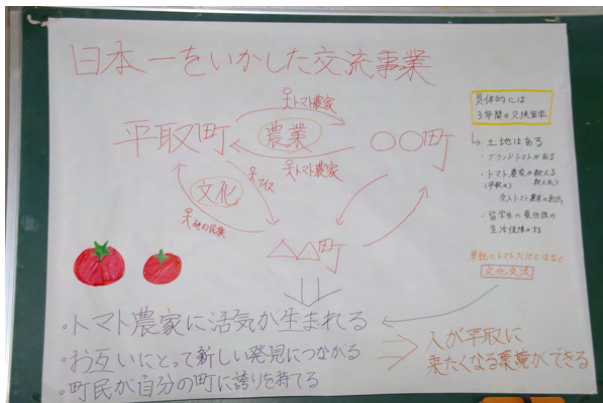 日本一をいかした交流事業
トマト農家
平取町
農業
○○町
トマト農家
文化
アイヌ
他の民族
△△町
具体的には
3年間の交換留学
土地はある
・ブランドトマトがある
・トマト農家が教える
(平取の)
受入トマト農家の
・留学生の最低限の
生活保障のする
単純にトマトだけではなく
文化交流
・トマト農家に活気が生まれる
・お互いにとって新しい発見につながる
・町民が自分の町に誇りを持てる
人が平取に
来たくなる業ができる